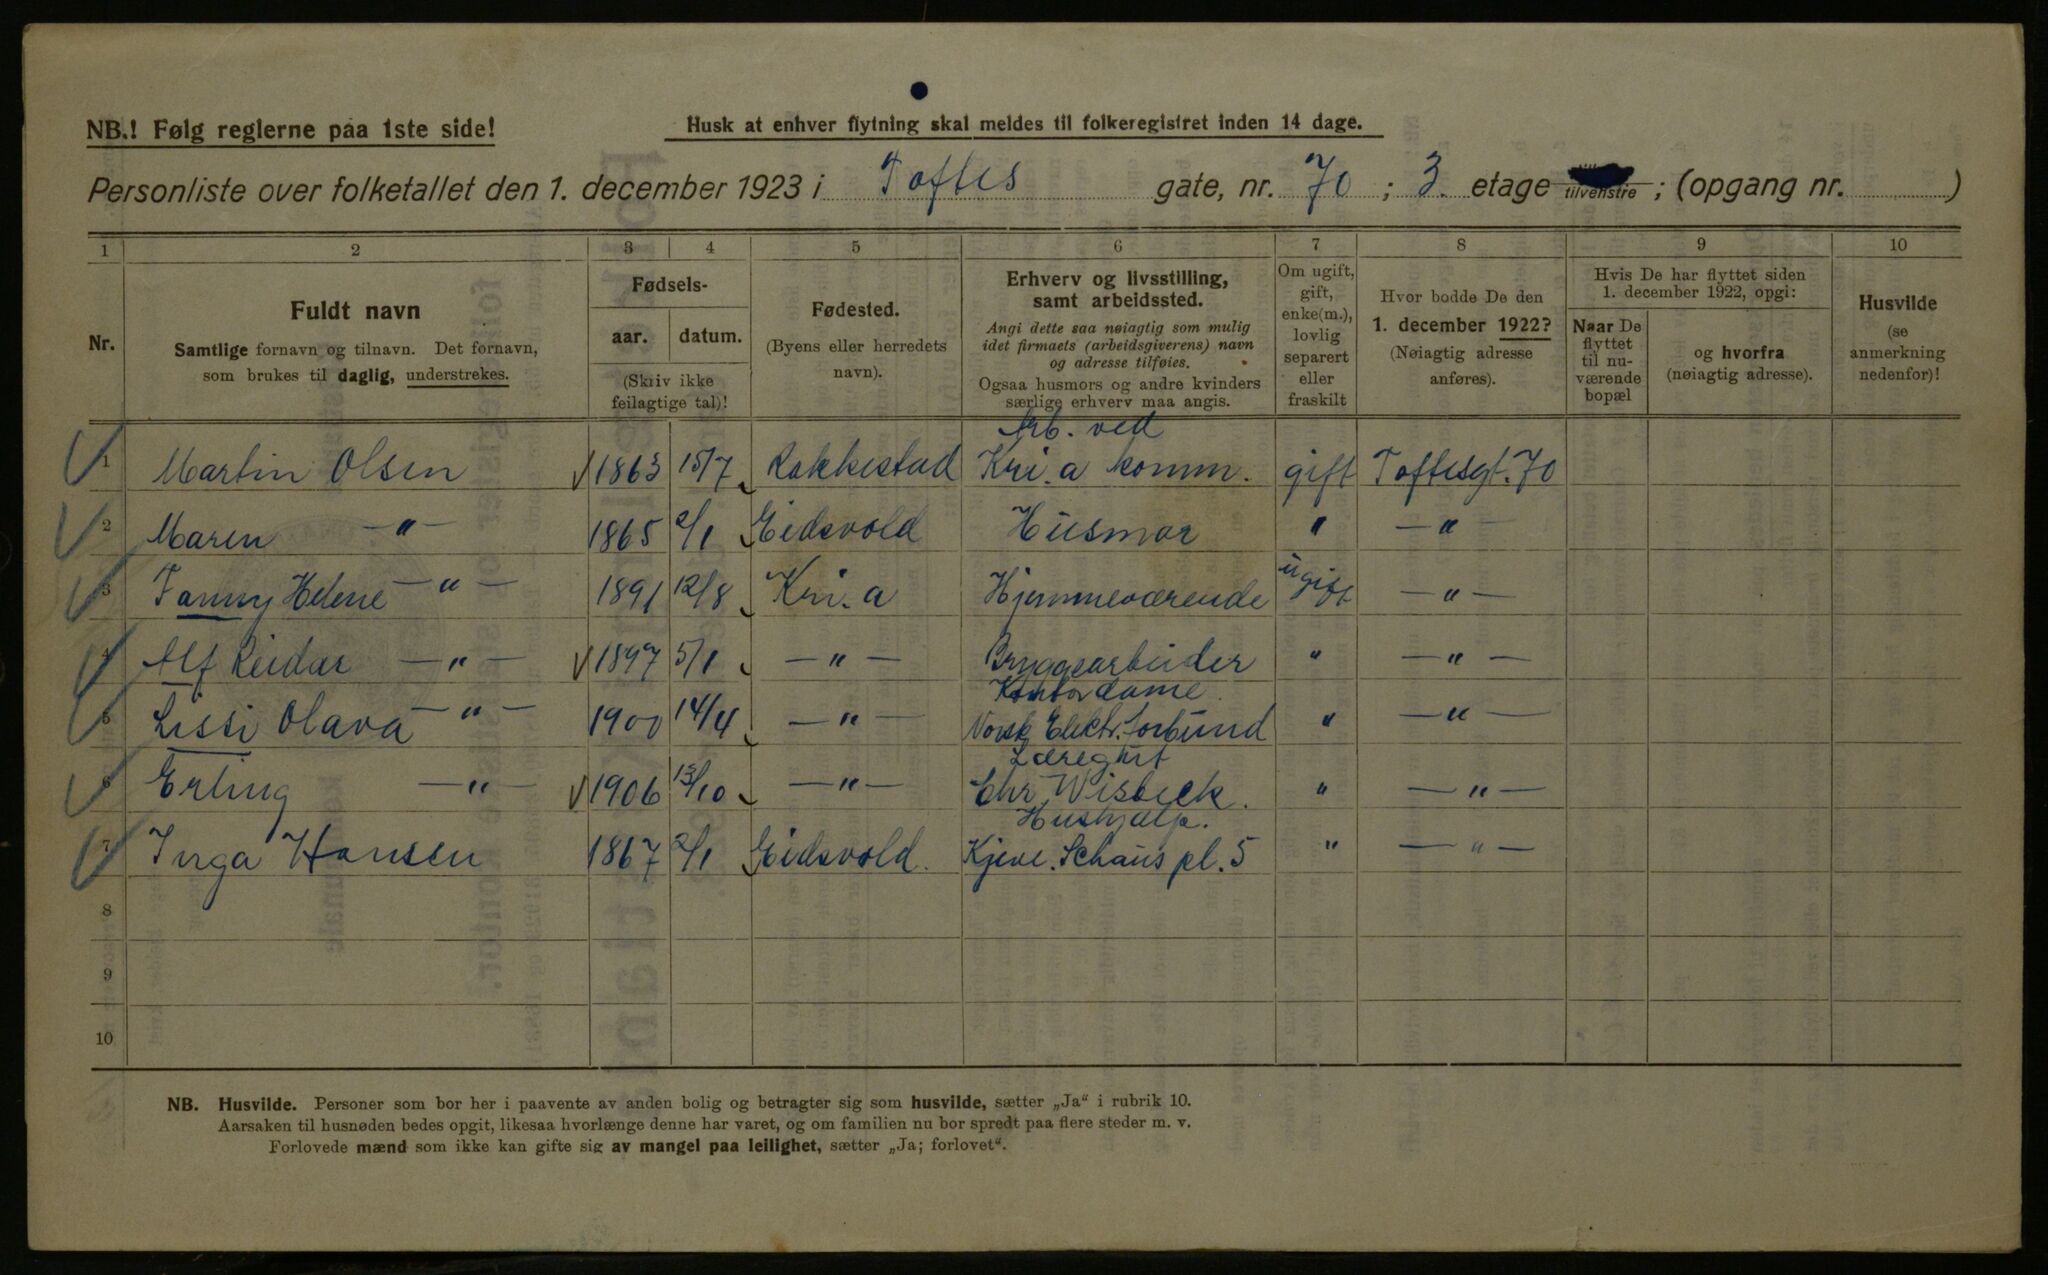 NB.! Følg reglerne paa 1ste side!
Husk at enhver flytning skal meldes til folkeregistret inden 14 dage.
Personliste over folketallet den 1. december 1923 i Toftes gate, nr. 70 ; 3. etage tilvenstre ; (opgang nr. )
1 2 3 4 5 6 7 8 9 10
Nr.
Fuldt navn
Samtlige fornavn og tilnavn. Det fornavn,
som brukes til daglig, understrekes.
Fødsels-
aar. datum.
(Skriv ikke
feilagtige tal)!
Fødested.
(Byens eller herredets
navn).
Erhverv og livsstilling,
samt arbeidssted.
Angi dette saa nøiagtig som mulig
idet firmaets (arbeidsgiverens) navn
og adresse tilføies.
Ogsaa husmors og andre kvinders
særlige erhverv maa angis.
Om ugift,
gift,
enke(m.),
lovlig
separert
eller
fraskilt
Hvor bodde De den
1. december 1922?
(Nøiagtig adresse
anføres).
Hvis De har flyttet siden
1. december 1922, opgi:
Naar De
flyttet
til nu-
værende
bopæl
og hvorfra
(nøiagtig adresse).
Husvilde
(se
anmerkning
nedenfor)!
Arb. ved
1 Martin Olsen 1863 15/7 Rakkestad Kri.a komm. gift Toftesgt. 70
2 Maren —"— 1865 2/1 Eidsvold Husmor " —"—
3 Fanny Helene —"— 1891 12/8 Kri.a Hjemmeværende ugift —"—
4 Alf Reidar —"— 1897 5/1 —"— Bryggearbeider " —"—
Kontordame.
5 Lissi Olava —"— 1900 14/4 —"— Norsk Elektr. Forbund " —"—
Læregut
6 Erling —"— 1906 13/10 —"— Chr. Wisbeck. " —"—
Hushjælp.
7 Inga Hansen 1867 2/1 Eidsvold. Kjeve. Schaus pl. 5 " —"—
8
9
10
NB. Husvilde. Personer som bor her i paavente av anden bolig og betragter sig som husvilde, sætter „Ja“ i rubrik 10.
Aarsaken til husnøden bedes opgit, likesaa hvorlænge denne har varet, og om familien nu bor spredt paa flere steder m. v.
Forlovede mænd som ikke kan gifte sig av mangel paa leilighet, sætter „Ja; forlovet“.